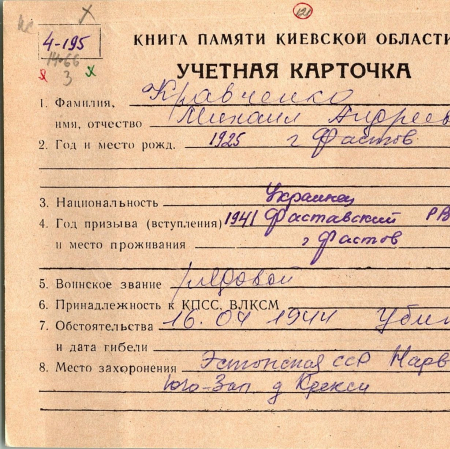 121
4-195
14-66
3
КНИГА ПАМЯТИ КИЕВСКОЙ ОБЛАСТИ
УЧЕТНАЯ КАРТОЧКА
1. Фамилия, Кравченко
имя, отчество Михаил Андреев
2. Год и место рожд. 1925 г Фастов
3. Национальность Украинец
4. Год призыва (вступления) 1941 Фаставский РВ
и место проживания г Фастов
5. Воинское звание рядовой
6. Принадлежность к КПСС, ВЛКСМ
7. Обстоятельства 16.04 1944 Убит
и дата гибели
8. Место захоронения Эстонская ССР Нарв
Юго-Зап д Крекси